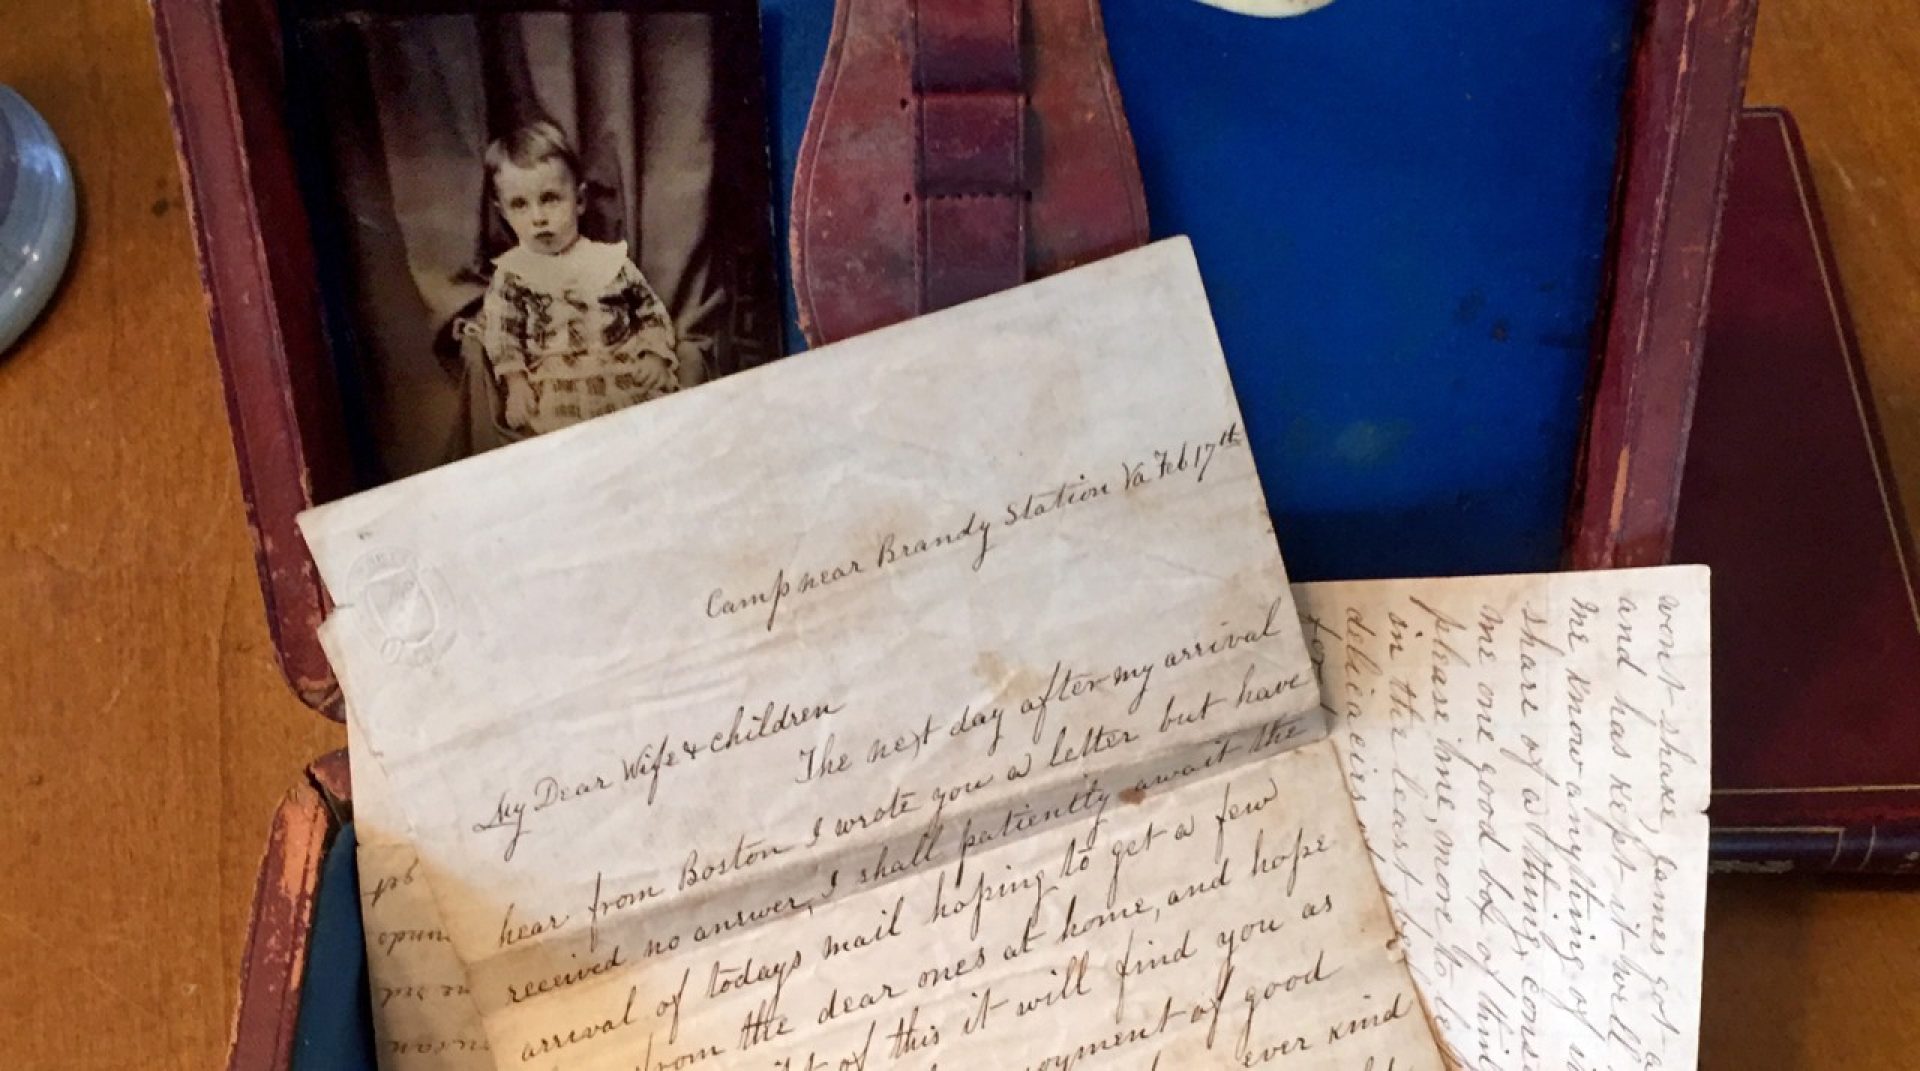 Camp near Brandy Station Va Feb 17th
My Dear Wife & children
The next day after my arrival
hear from Boston I wrote you a letter but have
received no answer, I shall patiently await the
arrival of todays mail hoping to get a few
from the dear ones at home, and hope
of this it will find you as
of good
ever kind
want shake, James got a
and has kept it will
me know anything of
share of a thing,
me one good box of
please me, more to
in the least
delicacies